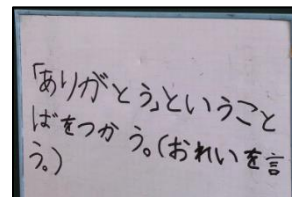 「ありがとう」ということ
ばをつかう。(おれいを言
う。)